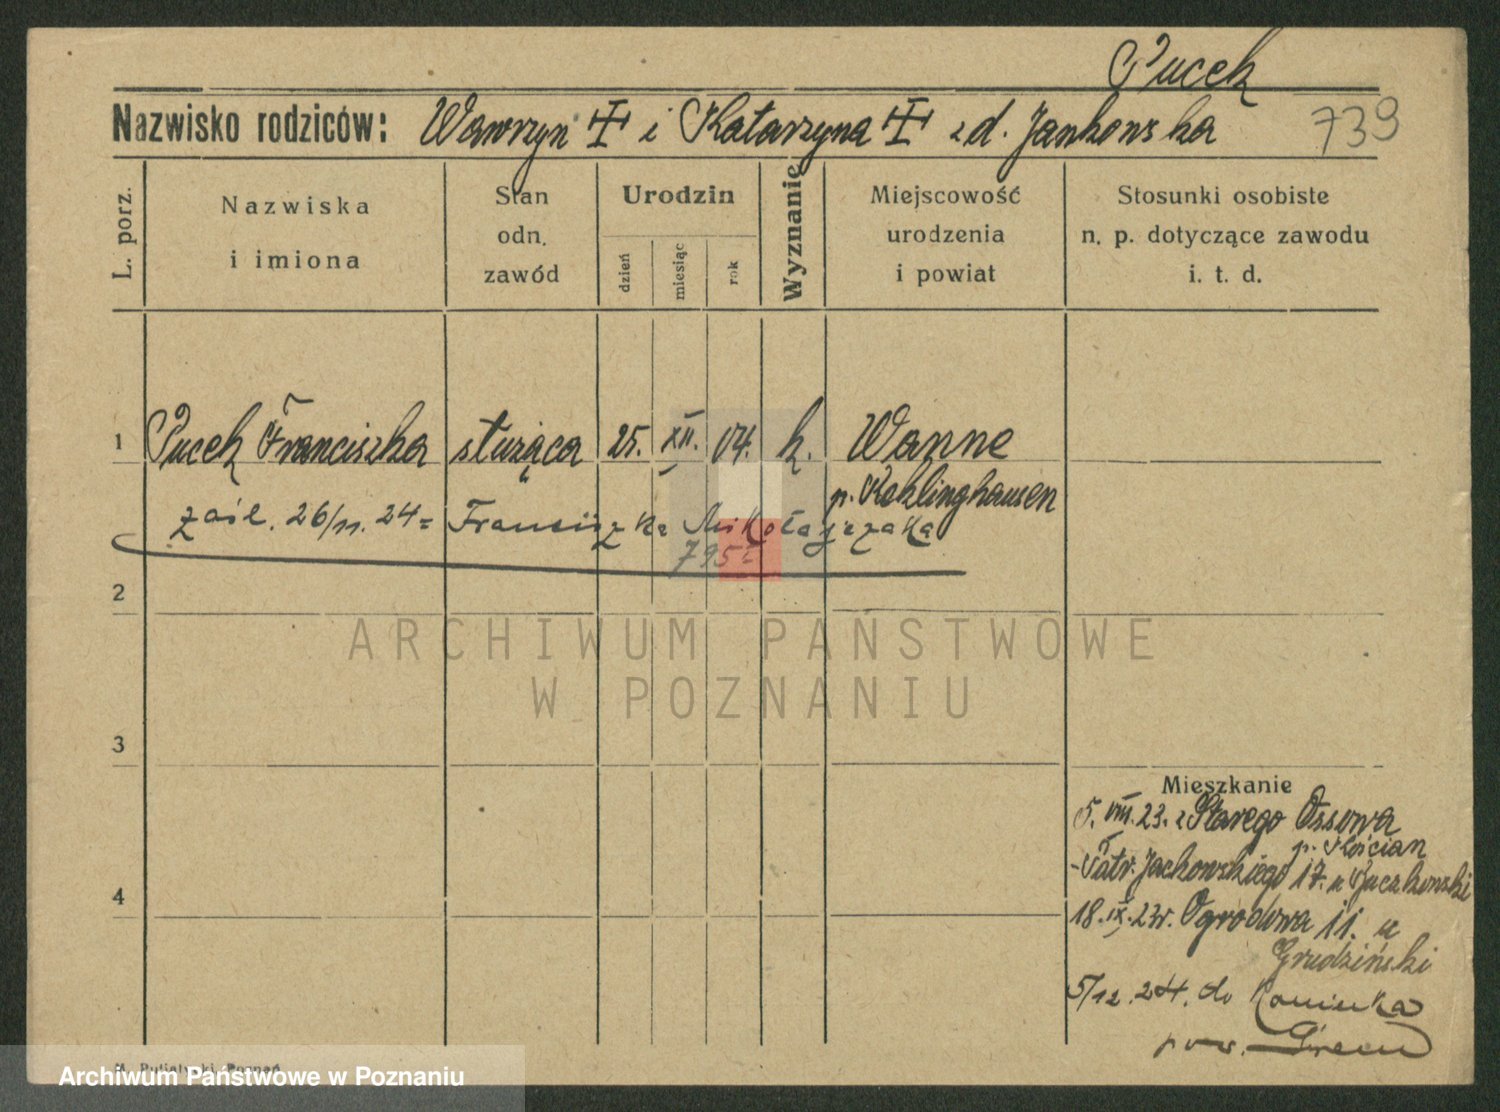 Pucek
Nazwisko rodziców: Wawrzyn i Katarzyna z d. Jankowska 739
L. porz.
Nazwiska
i imiona
Stan
odn.
zawód
Urodzin
dzień
miesiąc
rok
Wyznanie
Miejscowość
urodzenia
i powiat
Stosunki osobiste
n. p. dotyczące zawodu
i. t. d.
1 Pucek Franciszka służąca 25. XII. 04. k. Wanne
p. Reklinghausen
zaśl. 26/11. 24 = Franciszka Mikołajczaka
795
2
ARCHIWUM PAŃSTWOWE
W POZNANIU
3
Mieszkanie
5. VIII. 23. z Starego Ossowa
p. Kościan
4
- Patr. Jackowskiego 17. u
18. IX. 23r. Ogrodowa 11. u
Grudziński
5/12. 24. do
pow.
Poznań
Archiwum Państwowe w Poznaniu